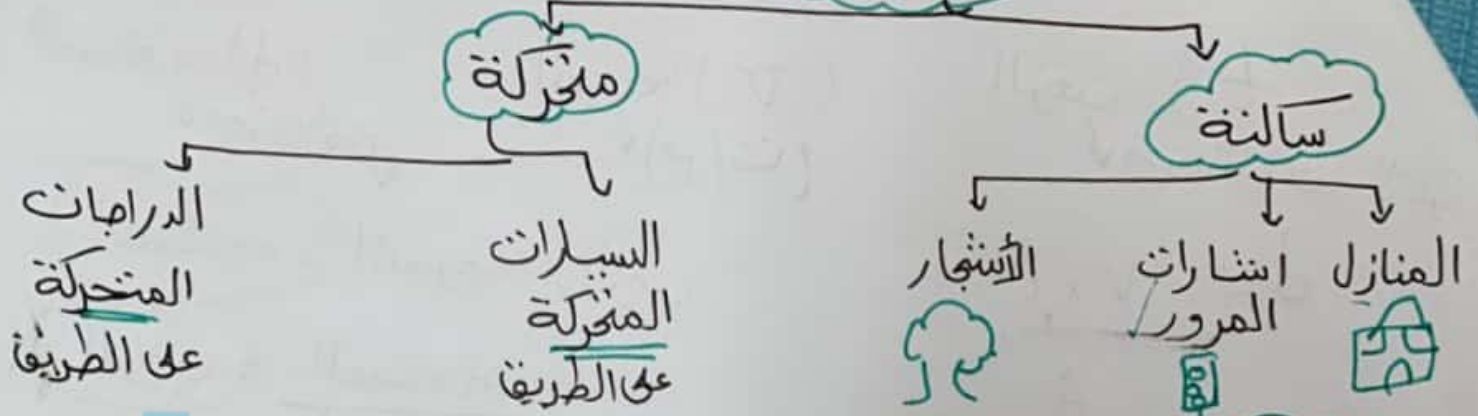 متحركة
ساكنة
المنازل
اشارات
المرور
الأشجار
السيارات
المتحركة
على الطريق
الدراجات
المتحركة
على الطريق